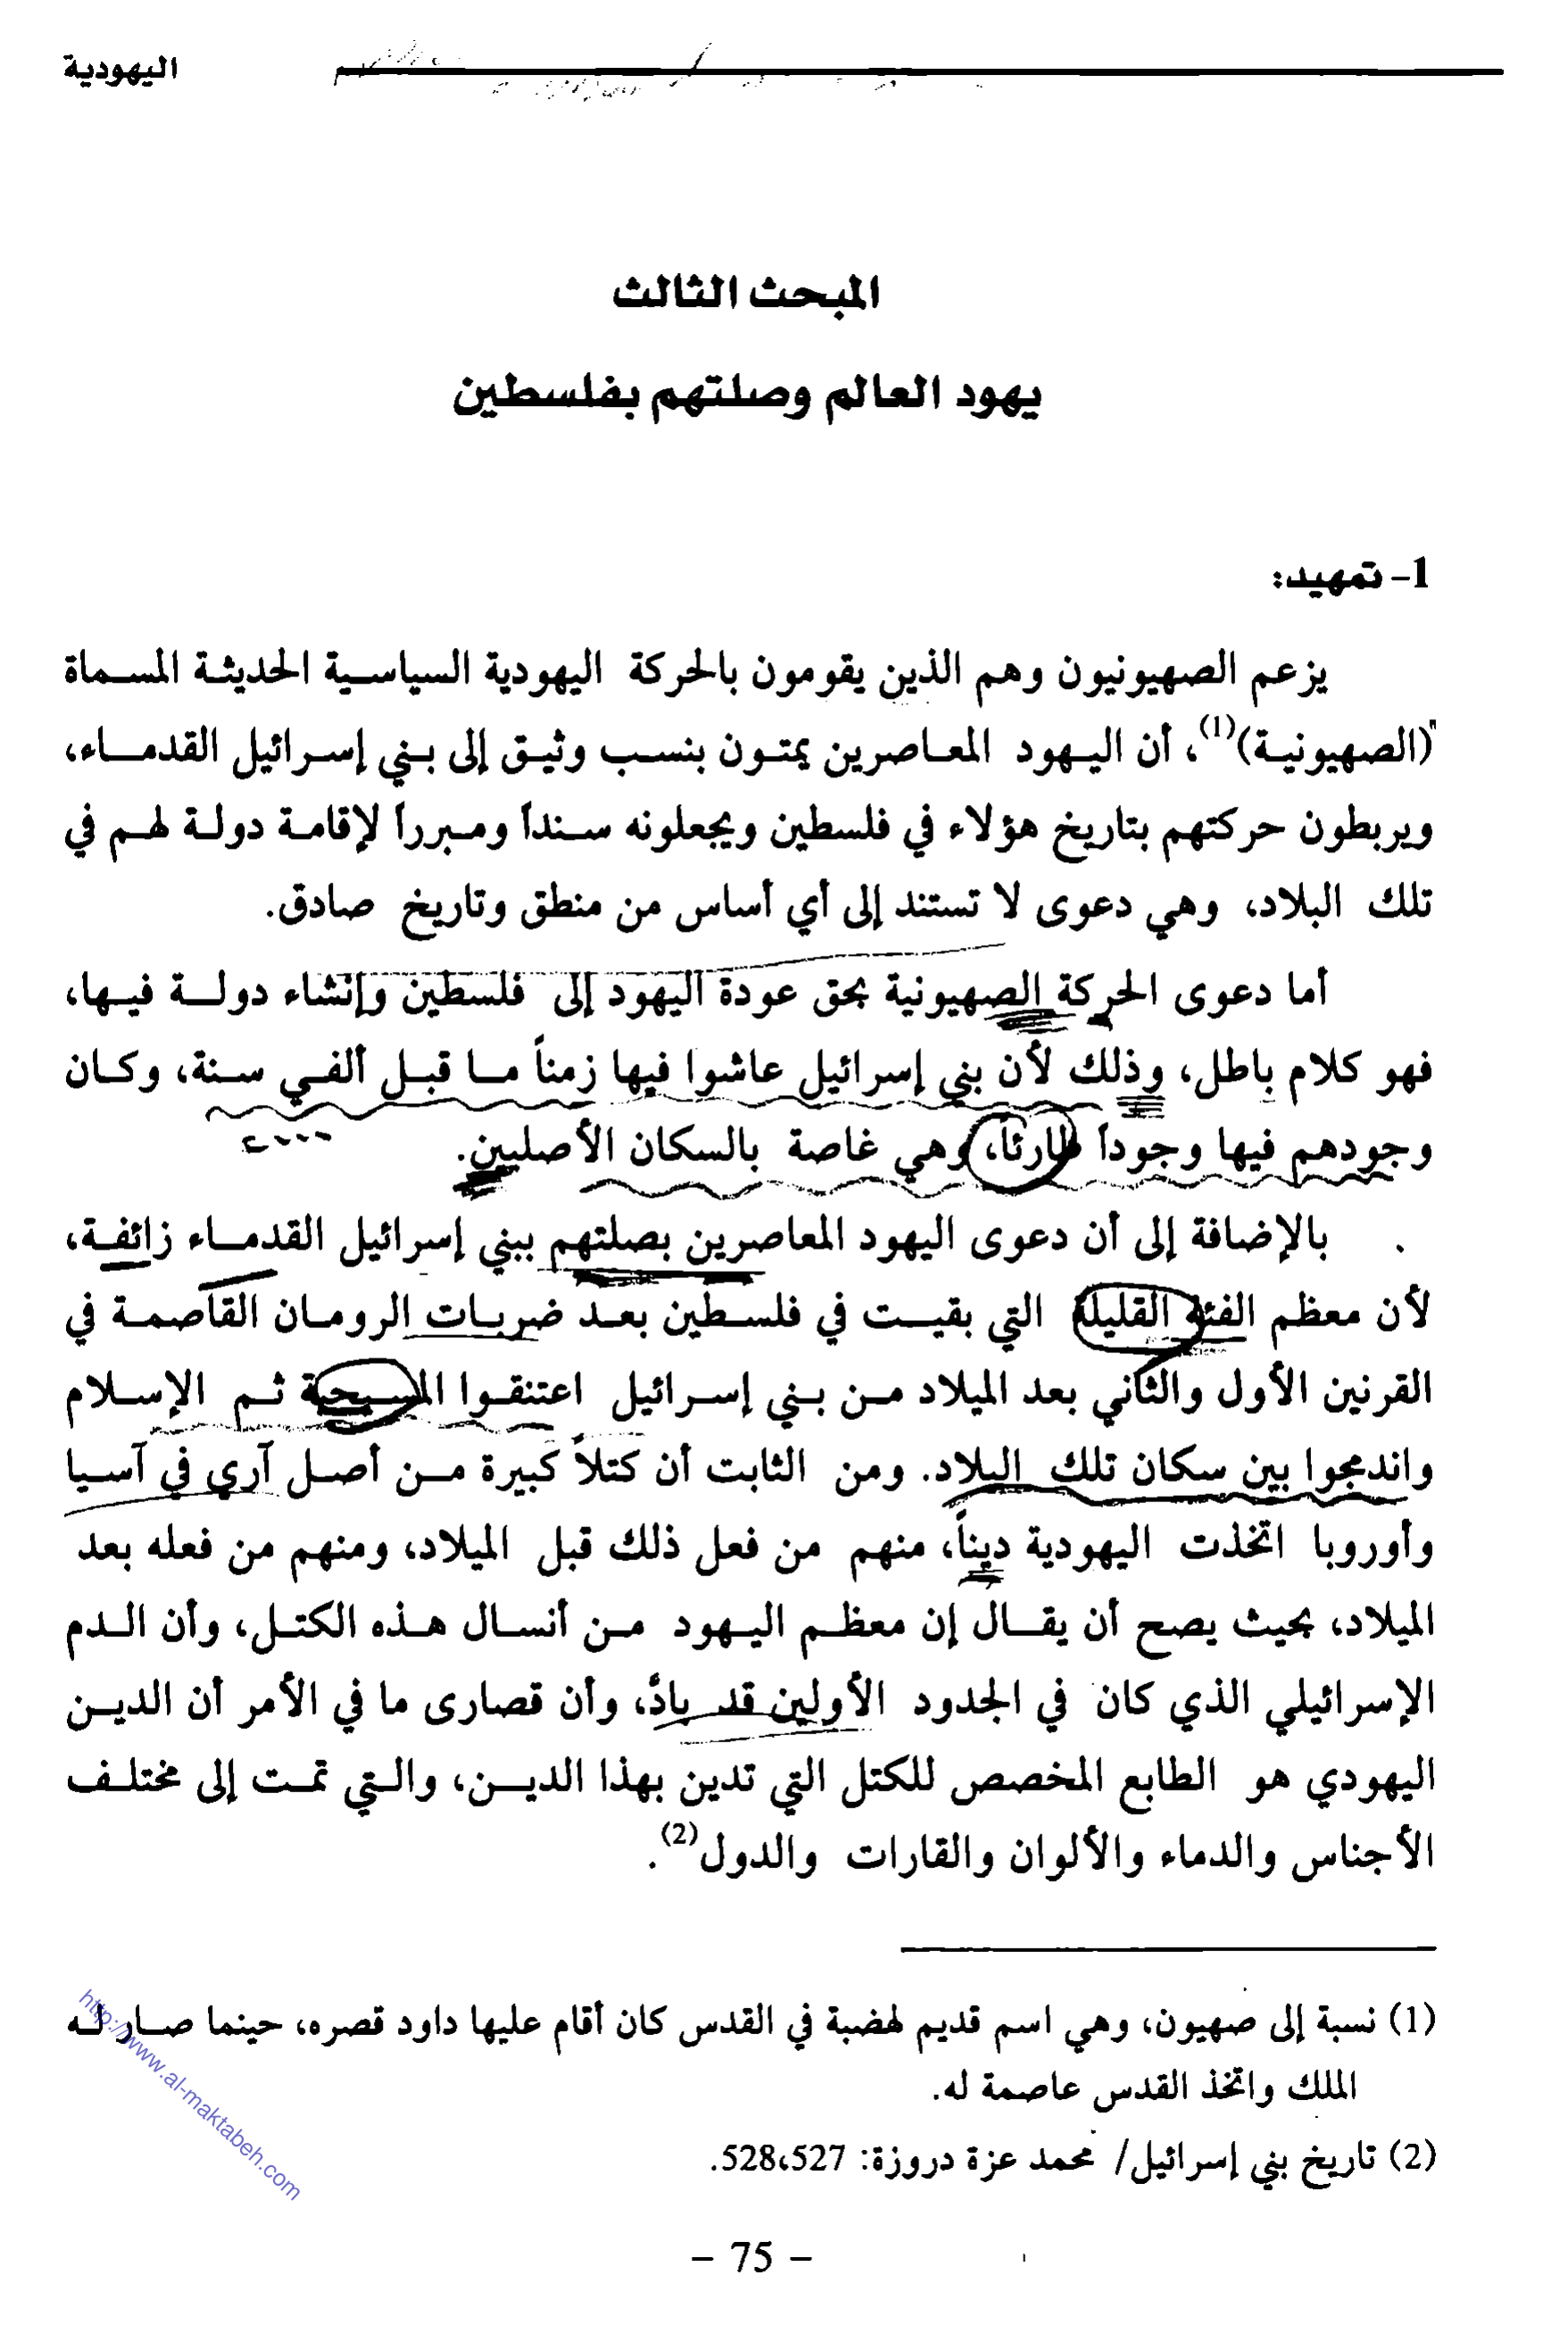 اليهودية
المبحث الثالث
يهود العالم وصلتهم بفلسطين
1- تمهيد:
يزعم الصهيونيون وهم الذين يقومون بالحركة اليهودية السياسية الحديثة المسماة
(الصهيونية)(1)، أن اليهود المعاصرين يمتون بنسب وثيق إلى بني إسرائيل القدماء،
ويربطون حركتهم بتاريخ هؤلاء في فلسطين ويجعلونه سنداً ومبرراً لإقامة دولة لهم في
تلك البلاد، وهي دعوى لا تستند إلى أي أساس من منطق وتاريخ صادق.
أما دعوى الحركة الصهيونية بحق عودة اليهود إلى فلسطين وإنشاء دولة فيها،
فهو كلام باطل، وذلك لأن بني إسرائيل عاشوا فيها زمناً ما قبل ألفي سنة، وكان
وجودهم فيها وجوداً طارئاً، وهي غاصة بالسكان الأصليين.
بالإضافة إلى أن دعوى اليهود المعاصرين بصلتهم ببني إسرائيل القدماء زائفة،
لأن معظم الفئة القليلة التي بقيت في فلسطين بعد ضربات الرومان القاصمة في
القرنين الأول والثاني بعد الميلاد من بني إسرائيل اعتنقوا المسيحية ثم الإسلام
واندمجوا بين سكان تلك البلاد. ومن الثابت أن كتلاً كبيرة من أصل آري في آسيا
وأوروبا اتخذت اليهودية ديناً، منهم من فعل ذلك قبل الميلاد، ومنهم من فعله بعد
الميلاد، بحيث يصح أن يقال إن معظم اليهود من أنسال هذه الكتل، وأن الدم
الإسرائيلي الذي كان في الجدود الأولين قد بادَّ، وأن قصارى ما في الأمر أن الدين
اليهودي هو الطابع المخصص للكتل التي تدين بهذا الدين، والتي تمت إلى مختلف
الأجناس والدماء والألوان والقارات والدول(2).
(1) نسبة إلى صهيون، وهي اسم قديم لهضبة في القدس كان أقام عليها داود قصره، حينما صار له
الملك واتخذ القدس عاصمة له.
(2) تاريخ بني إسرائيل/ محمد عزة دروزة: 527،528.
- 75 -
http://www.al-maktabeh.com